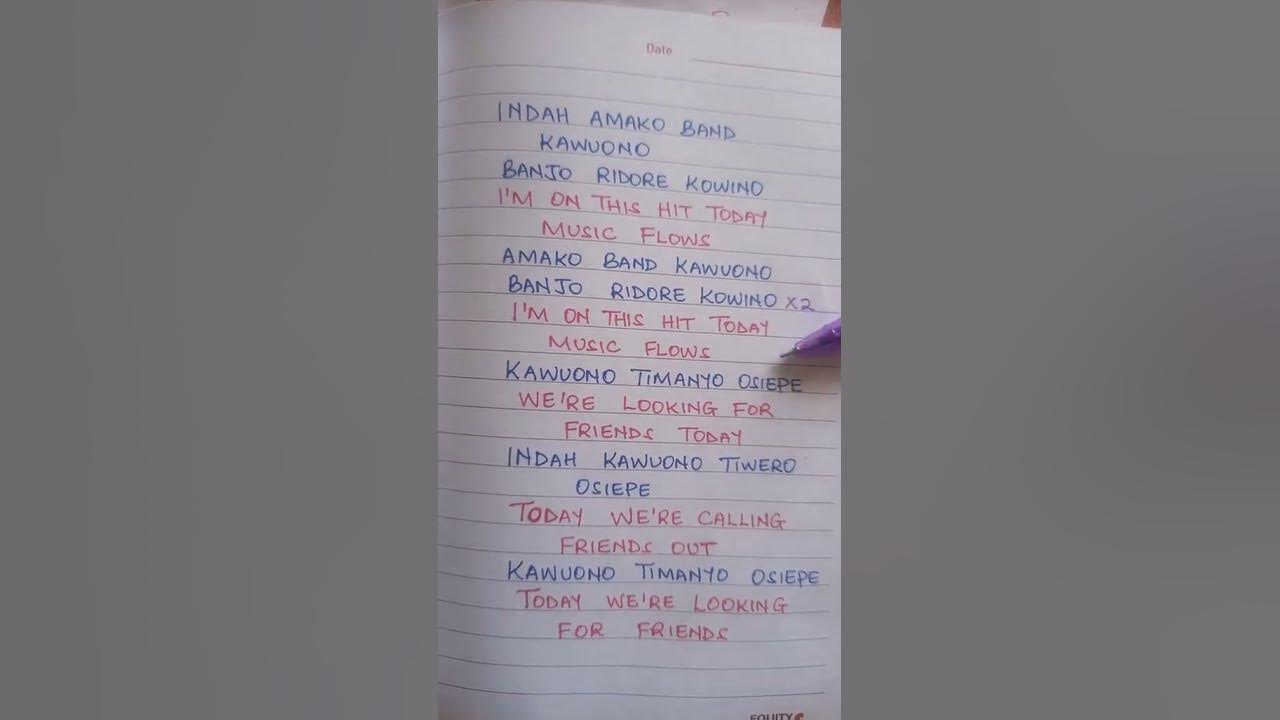 Date
INDAH AMAKO BAND
KAWUONO
BANJO RIDORE KOWINO
I'M ON THIS HIT TODAY
MUSIC FLOWS
AMAKO BAND KAWUONO
BANJO RIDORE KOWINO X2
I'M ON THIS HIT TODAY
MUSIC FLOWS
KAWUONO TIMANYO OSIEPE
WE'RE LOOKING FOR
FRIENDS TODAY
INDAH KAWUONO TIWERO
OSIEPE
TODAY WE'RE CALLING
FRIENDS OUT
KAWUONO TIMANYO OSIEPE
TODAY WE'RE LOOKING
FOR FRIENDS
EQUITY